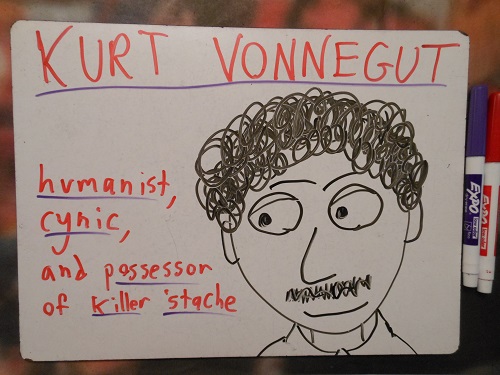 KURT VONNEGUT
humanist,
cynic,
and possessor
of killer 'stache
EXPO
EXPO